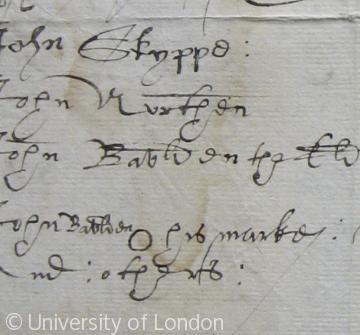 John Skyppe :
John Nurthen
John Babbden the Eld
John Babbden his marke :
And : others :
© University of London